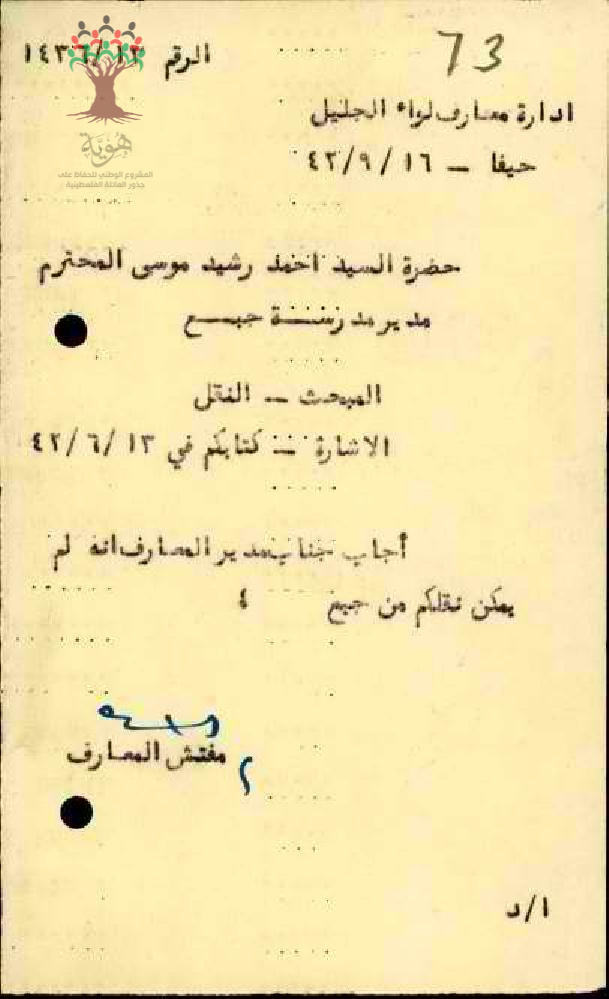 73
الرقم ١٤٣٦/١٣
هوية
المشروع الوطني للحفاظ على
جذور العائلة الفلسطينية
ادارة معارف لواء الجليل
حيفا – ٤٢/٩/١٦
حضرة السيد احمد رشيد موسى المحترم
مدير مدرسة جبع
المبحث – النقل
الاشارة – كتابكم في ٤٢/٦/١٣
أجاب جناب مدير المعارف انه لم
يمكن نقلكم من جبع ٤
مفتش المعارف
ا/د